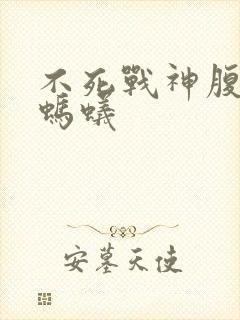 不死戰神腹
螞蟻
安墓天使